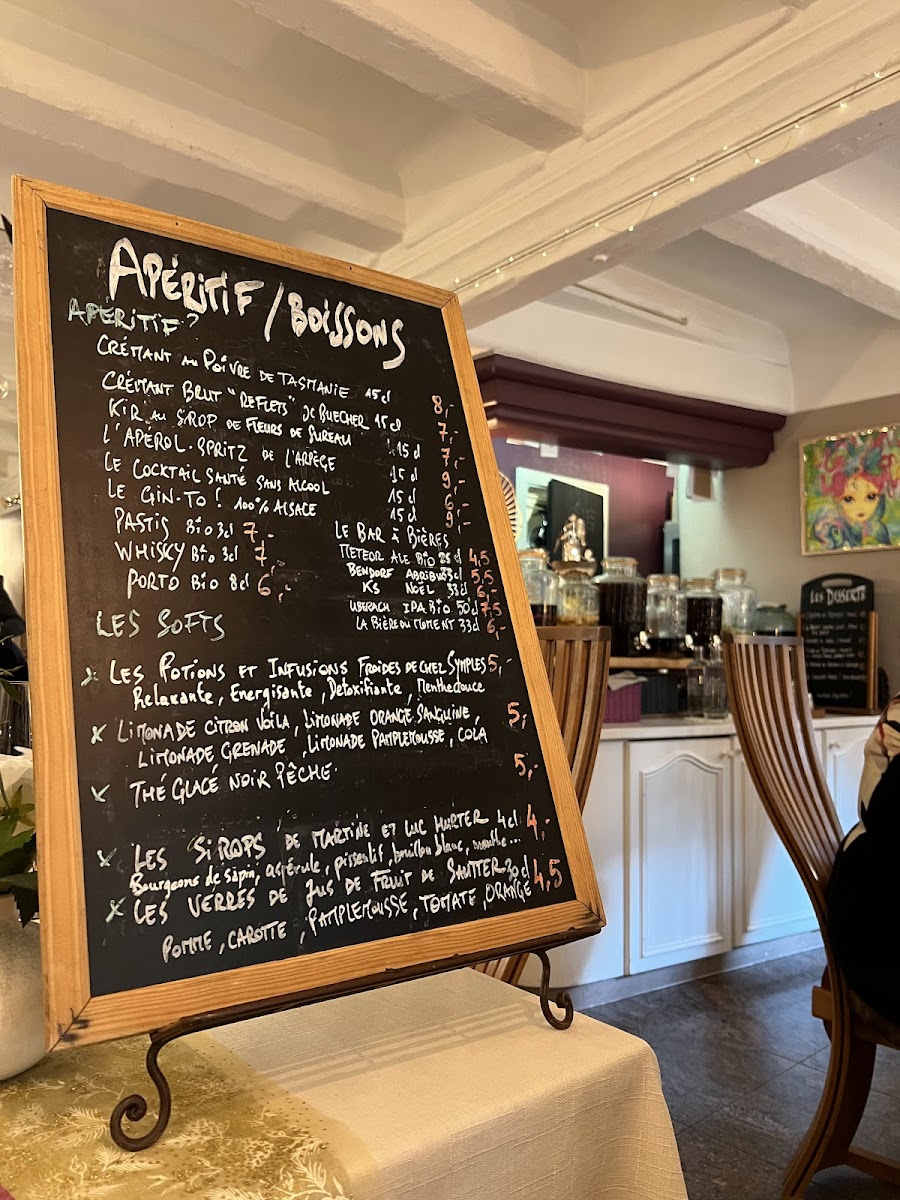 APÉRITIF / BOISSONS
APÉRITIF ?
CRÉMANT AU POIVRE DE TASMANIE 15 cl 8,-
CRÉMANT BRUT "REFLETS" DE BUECHER 15 cl 7,-
KIR AU SIROP DE FLEURS DE SUREAU 15 cl 7,-
L'APÉROL-SPRITZ DE L'ARPÈGE 15 cl 9,-
LE COCKTAIL SANTÉ SANS ALCOOL 15 cl 6,-
LE GIN-TO ! 100% ALSACE 15 cl 9,-
PASTIS BIO 3cl 7,-
WHISKY BIO 3cl 7,-
PORTO BIO 8cl 6,-
LE BAR À BIÈRES
METEOR ALE BIO 25 cl 4,5
BENDORF 33cl 5,5
KS NOËL 33 cl 6,-
UBERACH IPA BIO 50 cl 7,5
LA BIÈRE DU MOMENT 33cl 6,-
LES SOFTS
x LES POTIONS ET INFUSIONS FROIDES DE CHEZ SYMPLES 5,-
Relaxante, Energisante, Detoxifiante, Menthe douce
x LIMONADE CITRON VOILA, LIMONADE ORANGE SANGUINE, 5,-
LIMONADE GRENADE, LIMONADE PAMPLEMOUSSE, COLA
x THÉ GLACÉ NOIR PÊCHE. 5,-
x LES SIROPS DE MARTINE ET LUC HURTER 4cl: 4,-
Bourgeons de sapin, aspérule, pissenlit, bouillon blanc, menthe...
x LES VERRES DE JUS DE FRUIT DE SAUTTER 30 cl 4,5
POMME, CAROTTE, PAMPLEMOUSSE, TOMATE, ORANGE
LES DESSERTS